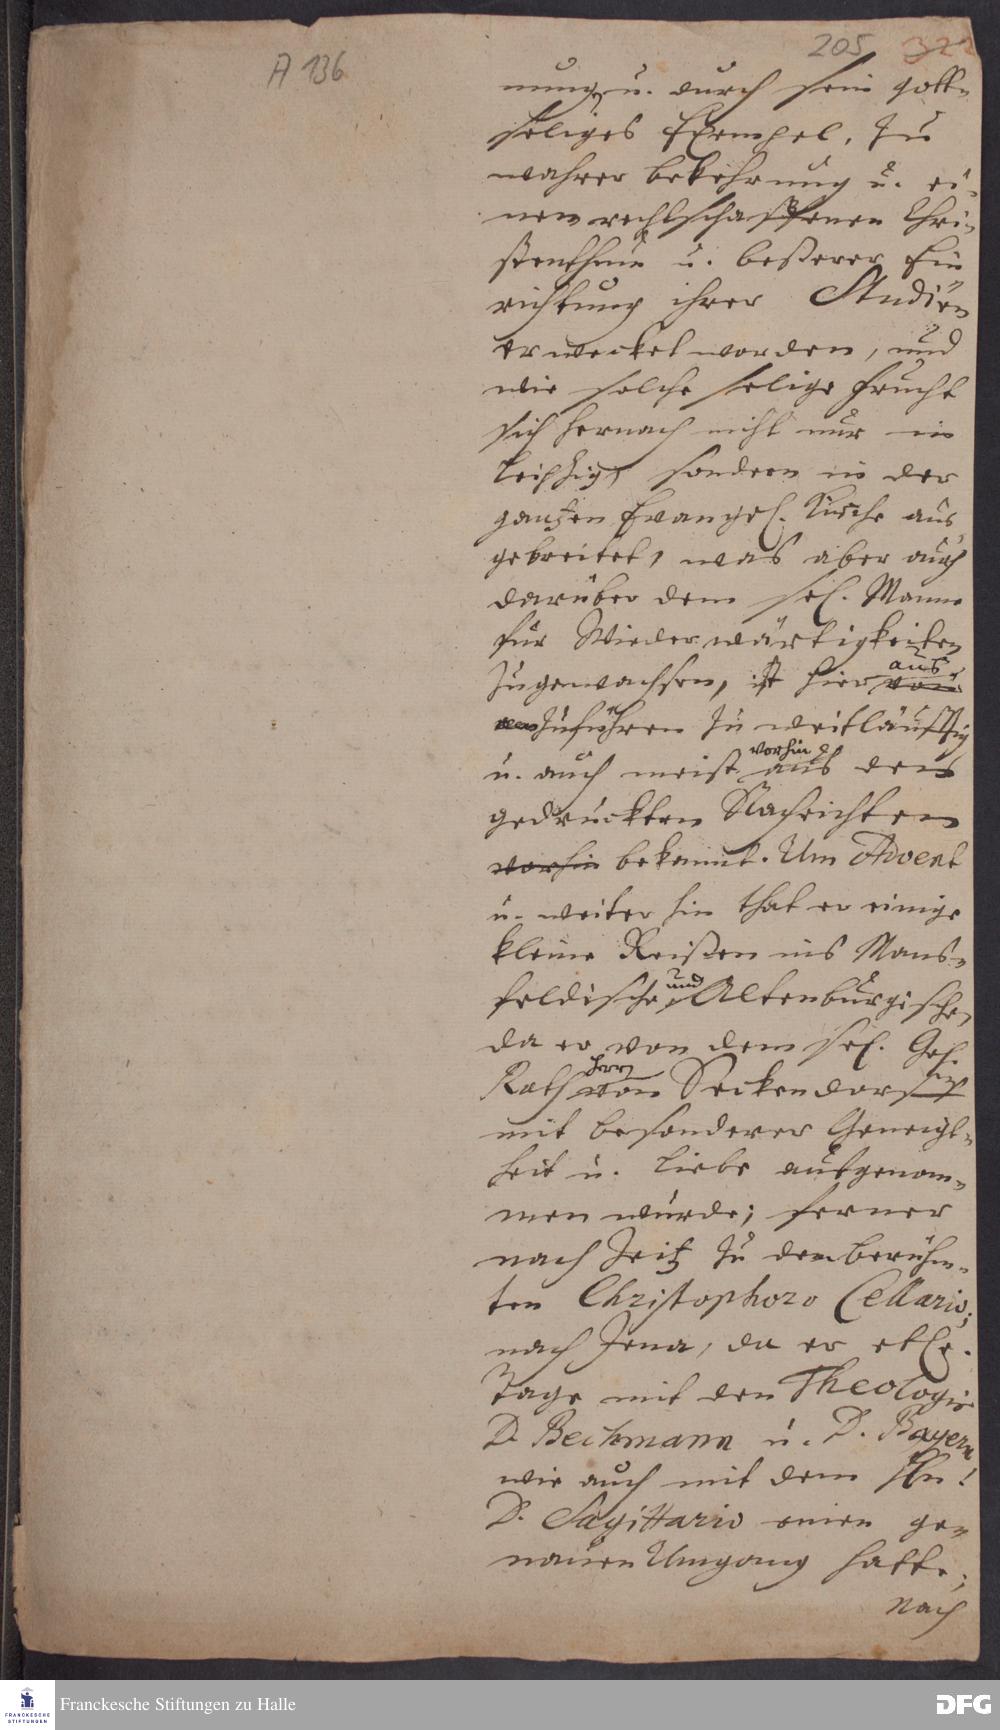 A 136
205 322
nung, u. durch sein gott-
seliges Exempel, zu
wahrer bekehrung u. ei-
nem rechtschaffenen Chri-
stenthum u. beßerer Ein
richtung ihrer Studien
erwecket worden, und
wie solche selige Frucht
sich hernach nicht nur in
Leipzig, sondern in der
gantzen Evangel. Kirche aus
gebreitet, was aber auch
darüber dem sel. Manne
für Wiederwärtigkeiten
zugewachsen, ist hier aus
zuführen zu weitläufftig
u. auch meist vorhin aus den
gedruckten Nachrichten
vorhin bekannt. Um Advent
u. weiter hin that er einige
kleine Reißen ins Mans-
feldische und Altenburgische,
da er von dem sel. Geh.
Rath Herrn von Seckendorff
mit besonderer Geneigt-
heit u. Liebe aufgenom-
men wurde; ferner
nach Zeitz zu dem berühm-
ten Christophoro Cellario;
nach Jena, da er etl.
Tage mit den Theologis
D. Bechmann u. D. Bayern
wie auch mit dem Hn.
D. Sagittario einen ge-
nauen Umgang hatte;
nach
Franckesche Stiftungen zu Halle
FRANCKESCHE
STIFTUNGEN
DFG